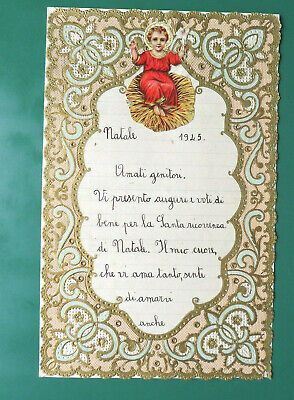 Natale 1925.
Amati genitori.
Vi presento auguri e voti di
bene per la Santa ricorrenza
di Natale. Il mio cuore,
che vi ama tanto, sente
di amarvi
anche